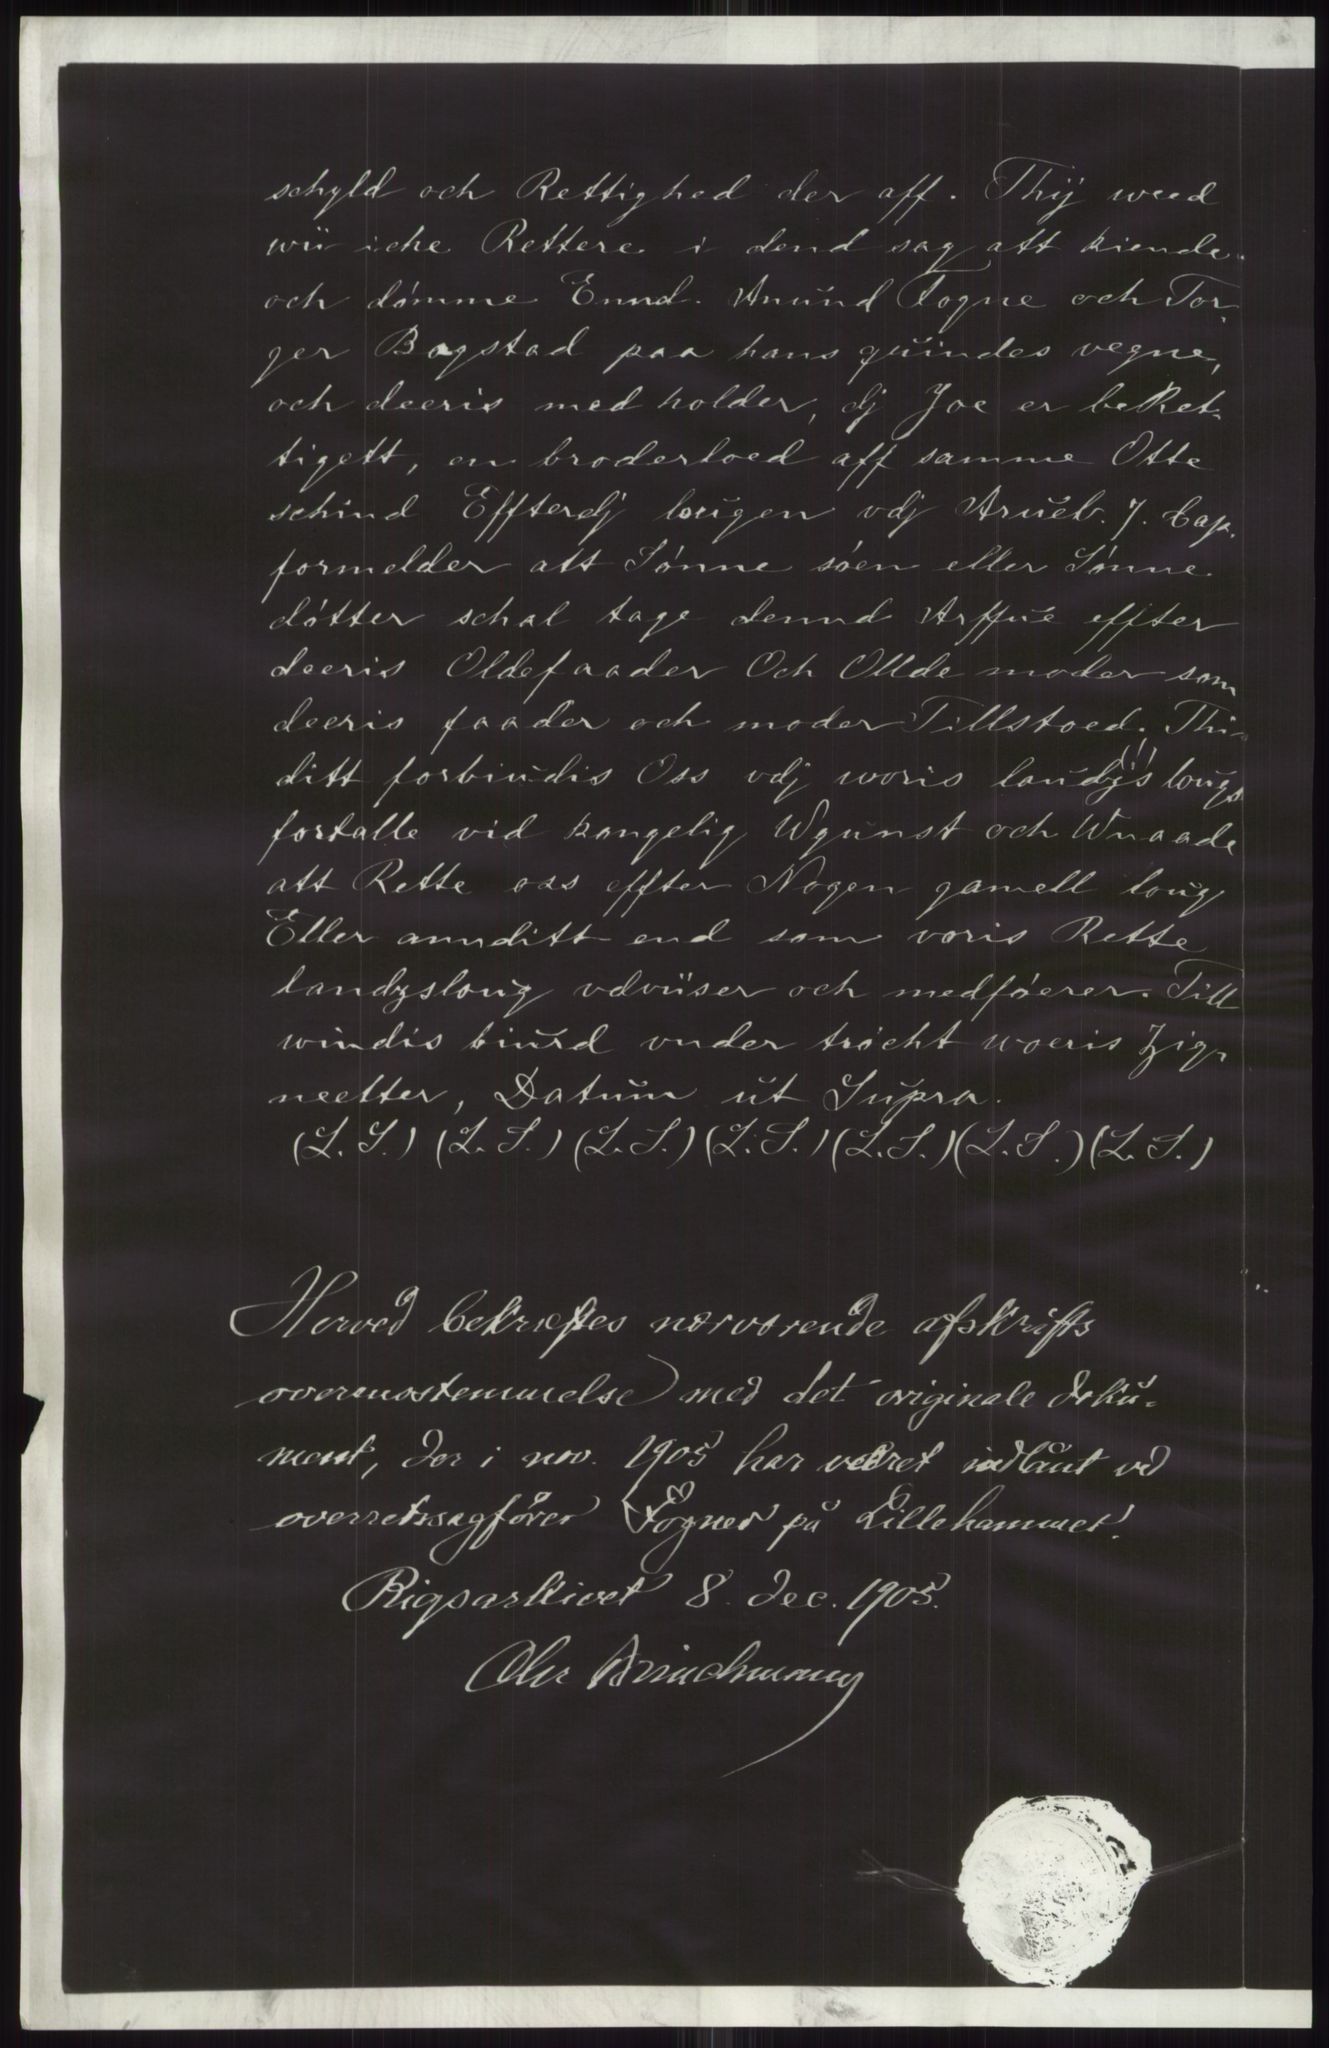 schyld och Rettighed der aff. Thÿ weed
wii icke Rettere i dend sag att kiende
och dömme Ennd. Amund Fogne och Tor-
ger Bagstad paa hans quindes vegne,
och deeris med holder, dj Joe er beRet-
tigett, en broderloed aff samme Otte
schind Effterdj lougen vdj Arueb. 7. Cap.
formelder att Sönne söen eller Sönne
dötter schal tage dennd Arffue effter
deeris Oldefaader Och Ollde moder som
deeris faader och moder Tillstoed. Thi
ditt forbiudis Oss vdj woris landz (!) lougs
fortalle vid kongelig Wgunst och Wnaade
att Rette oss effter Nogen gamell loug
Eller annditt end som voris Rette
landzsloug vdviiser och medföerer. Till
windis biurd vnder tröcht woeris Zig-
neetter, Datum ut Supra.
(L. S.) (L. S.) (L. S.) (L. S.) (L. S.) (L. S.) (L. S.)
Herved bekræftes nærværende afskrifts
overensstemmelse med det originale doku-
ment, der i nov. 1905 har været indlånt ved
overretssagfører Fogner på Lillehammer.
Rigsarkivet 8. dec. 1905.
Chr Brinchmann